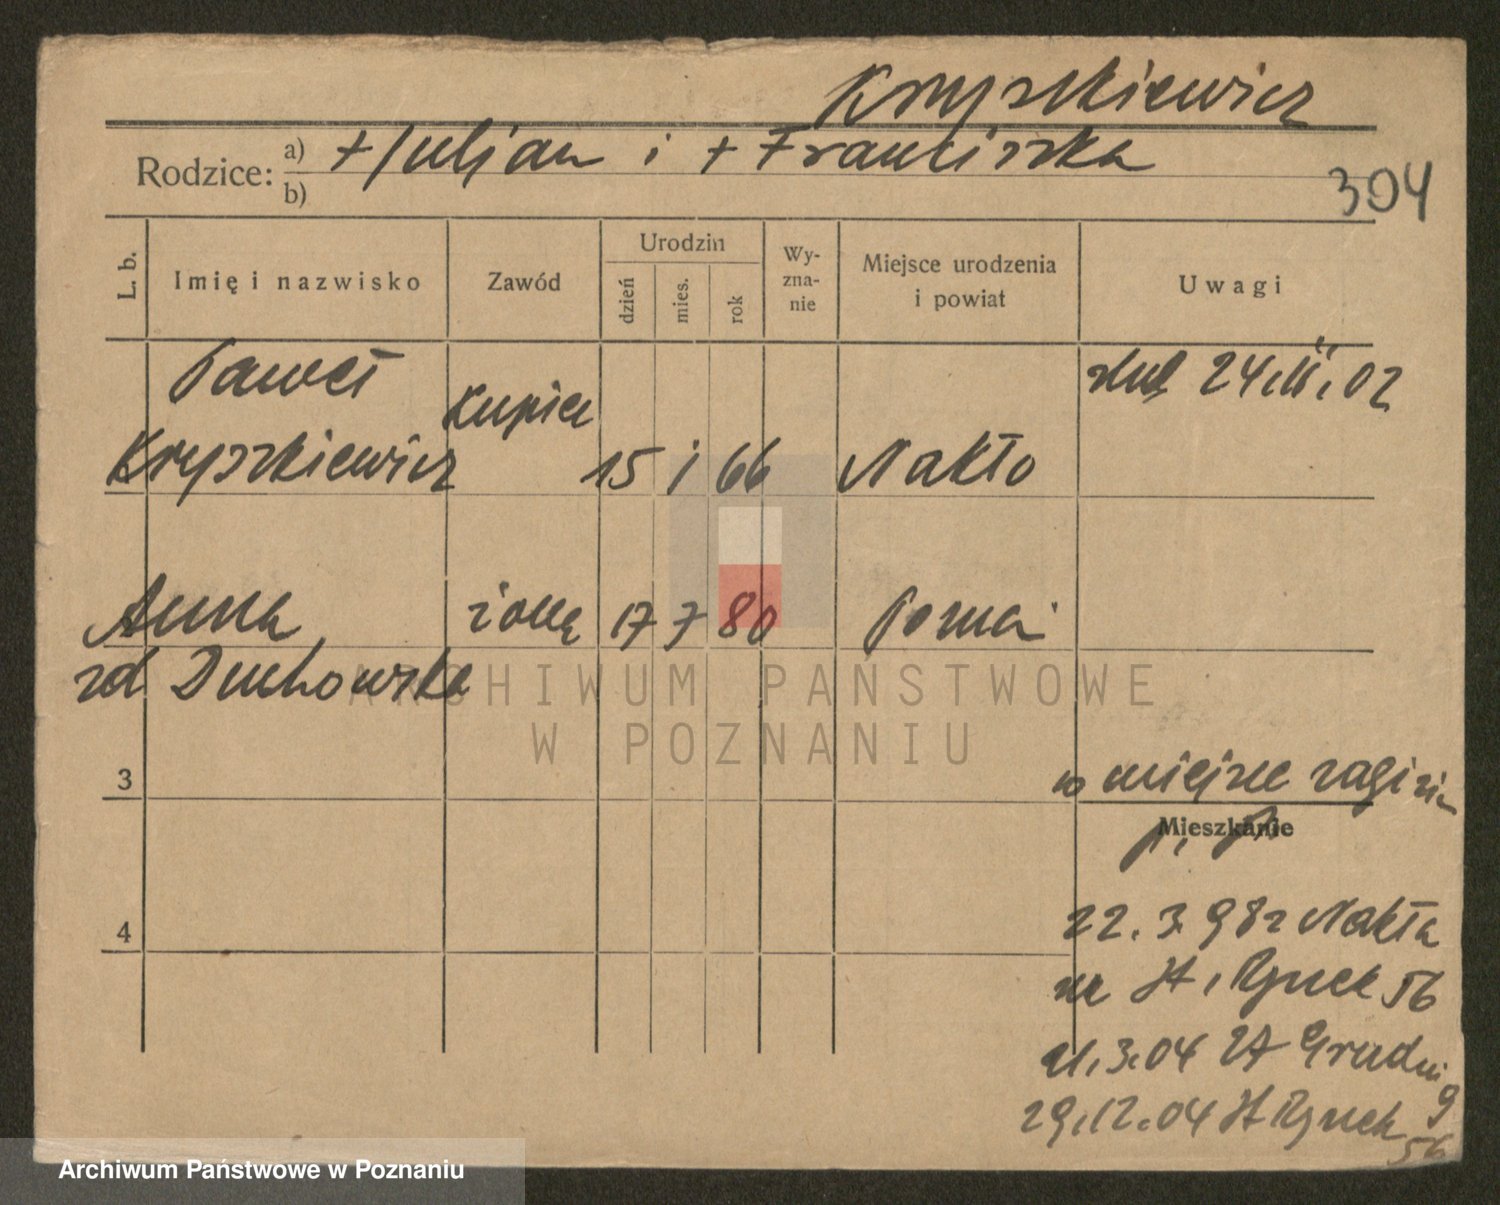 Kryszkiewicz
Rodzice: a) + Juljan i + Franciszka
b)
304
L. b.
Imię i nazwisko
Zawód
Urodzin
dzień
mies.
rok
Wy-
zna-
nie
Miejsce urodzenia
i powiat
Uwagi
Paweł
Kryszkiewicz
Kupiec
15 1 66
Nakło
ślub 24.II.02
Anna
zd Duchowska
żona
17 7 80
Poznań
3
w miejsce zagi
Mieszkanie
4
22. 3. 98 z Nakła
St. Rynek 56
21.3.04 Grudni
9
29.12.04 St Rynek
56
ARCHIWUM PAŃSTWOWE
W POZNANIU
Archiwum Państwowe w Poznaniu